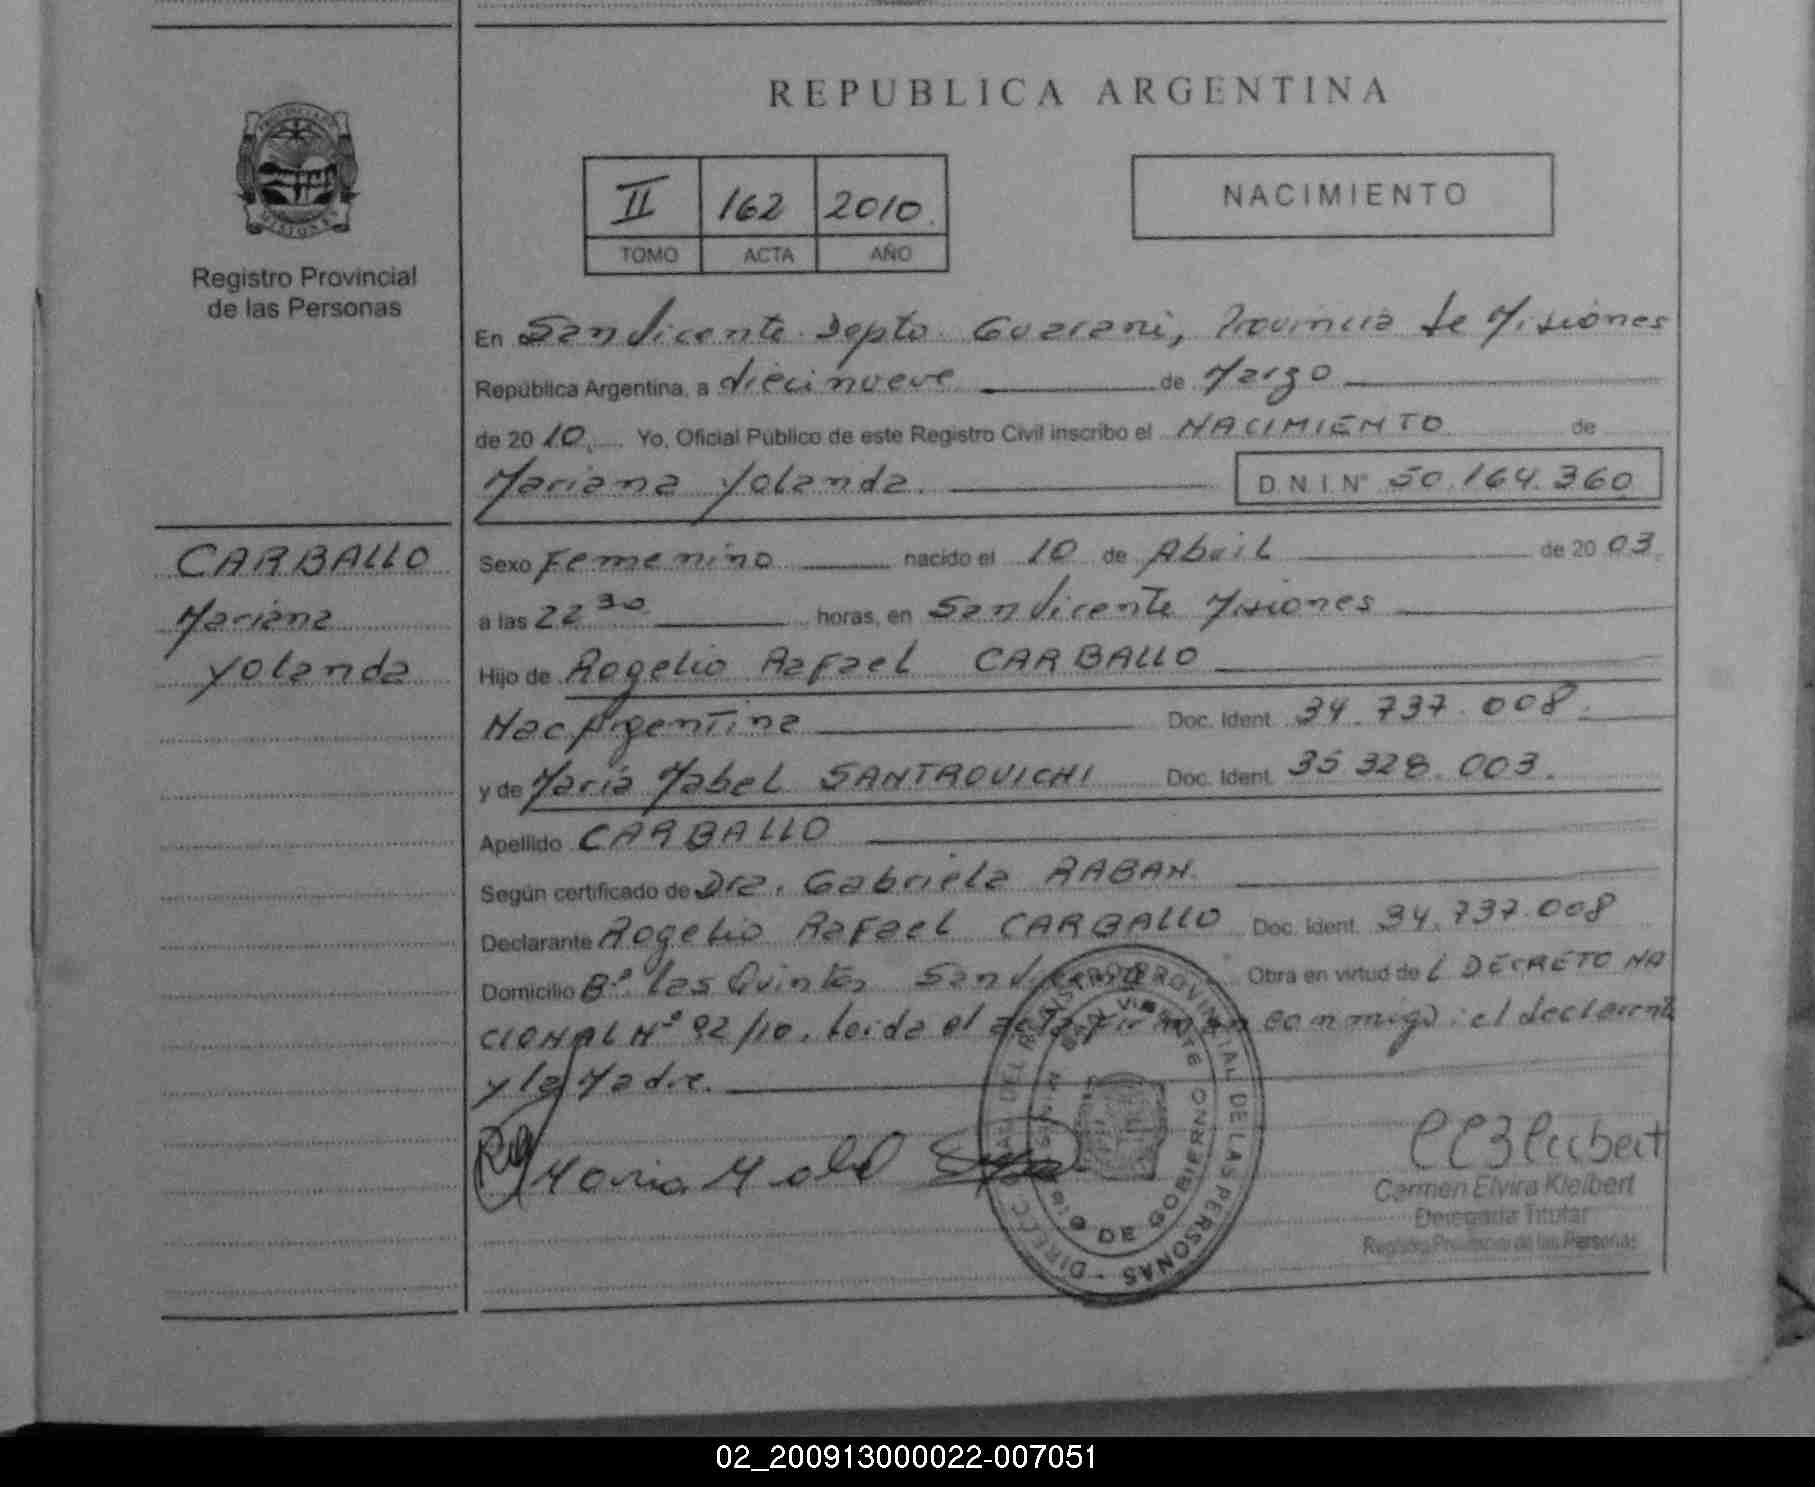 REPUBLICA ARGENTINA
II 162 2010.
TOMO ACTA AÑO
NACIMIENTO
Registro Provincial
de las Personas
En San Vicente Depto Guarani, Provincia de Misiones
República Argentina, a diecinueve de Marzo
de 2010. Yo, Oficial Público de este Registro Civil inscribo el NACIMIENTO de
Mariana Yolanda. D.N.I. N° 50.164.360
CARBALLO
Mariana
Yolanda
Sexo Femenino nacido el 10 de Abril de 2003.
a las 22 30 horas, en San Vicente Misiones
Hijo de Rogelio Rafael CARBALLO
Nac Argentina Doc. Ident. 34.737.008.
y de Maria Mabel SANTROVICHI Doc. Ident. 35 328.003.
Apellido CARBALLO
Según certificado de Dra. Gabriela RABAN.
Declarante Rogelio Rafael CARBALLO Doc. Ident. 34.737.008
Domicilio B° las Quintas San Vicente Obra en virtud de L DECRETO NA
CIONAL N° 92/10. Leida el acta firman conmigo: el declarante
y la Madre.
Maria Mabel
DIRECC. GRAL DEL REGISTRO PROVINCIAL DE LAS PERSONAS -
SAN VICENTE
MISIONES
MTRIO DE GOBIERNO
Carmen Elvira Kleibert
Delegada Titular
Registro Provincial de las Personas
02_200913000022-007051